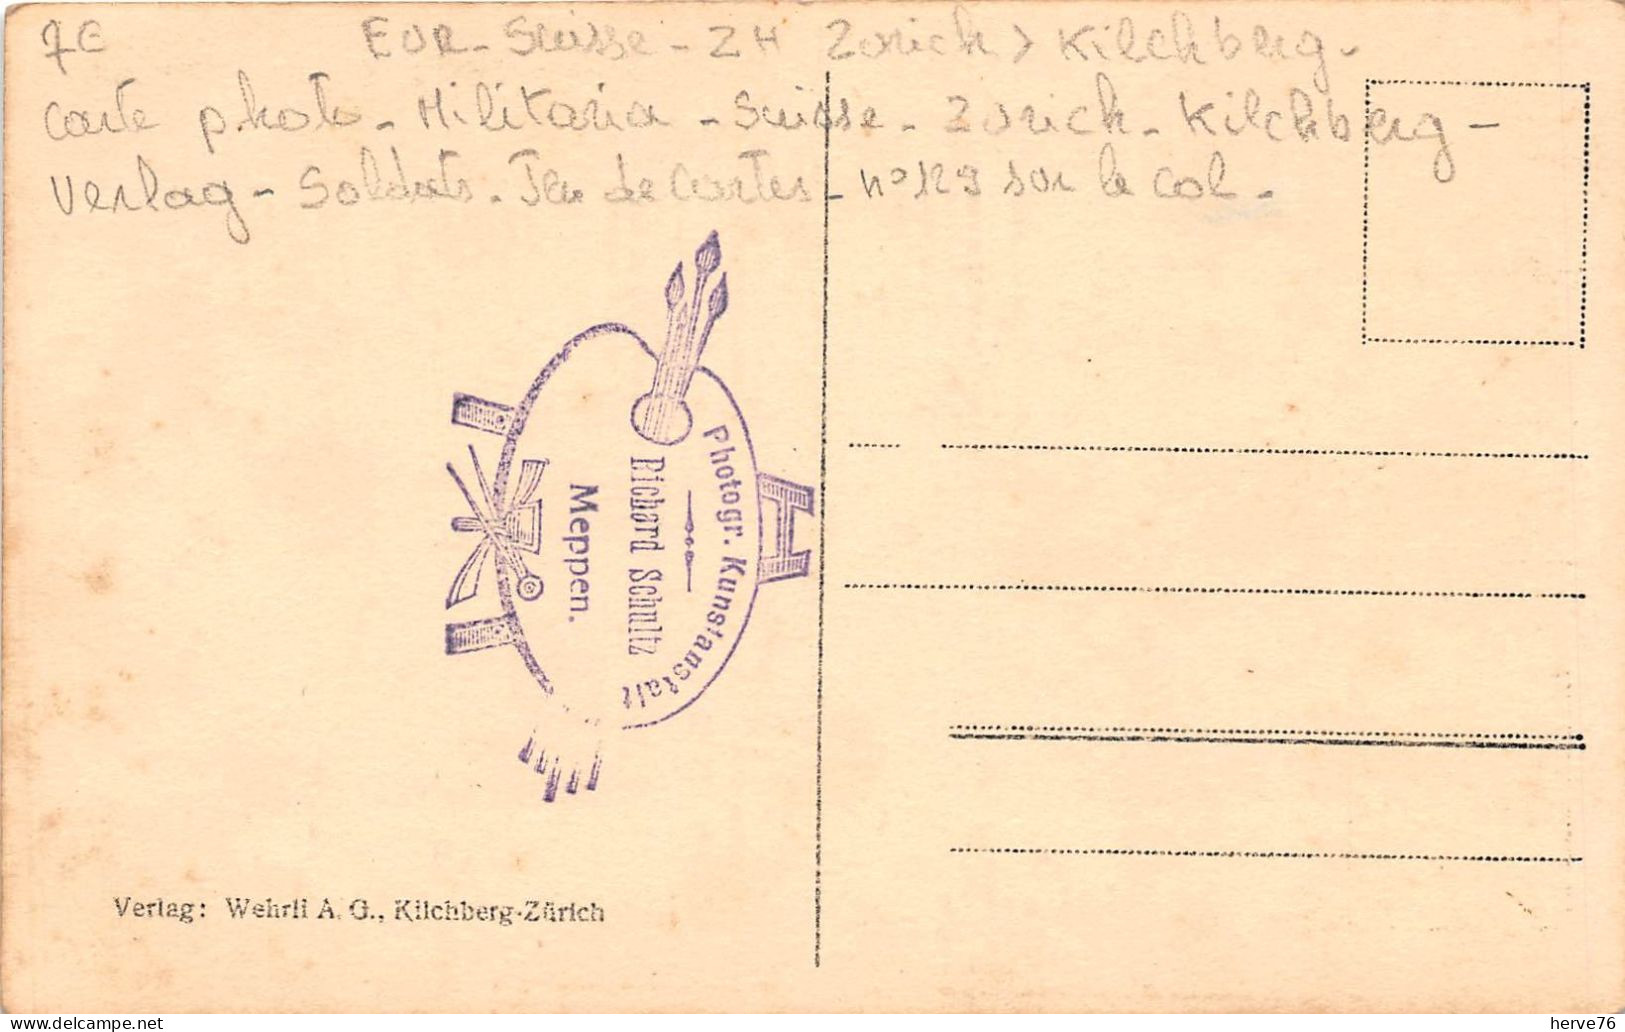 7€
EUR - Suisse - ZH Zurich > Kilchberg -
Carte photo - Militaria - Suisse - Zurich - Kilchberg -
Verlag - Soldats - Jeu de Cartes - n° 129 sur le col -
Photogr. Kunstanstalt
Richard Schultz
Meppen.
Verlag: Wehrli A. G., Kilchberg-Zürich
delcampe.net
herve76